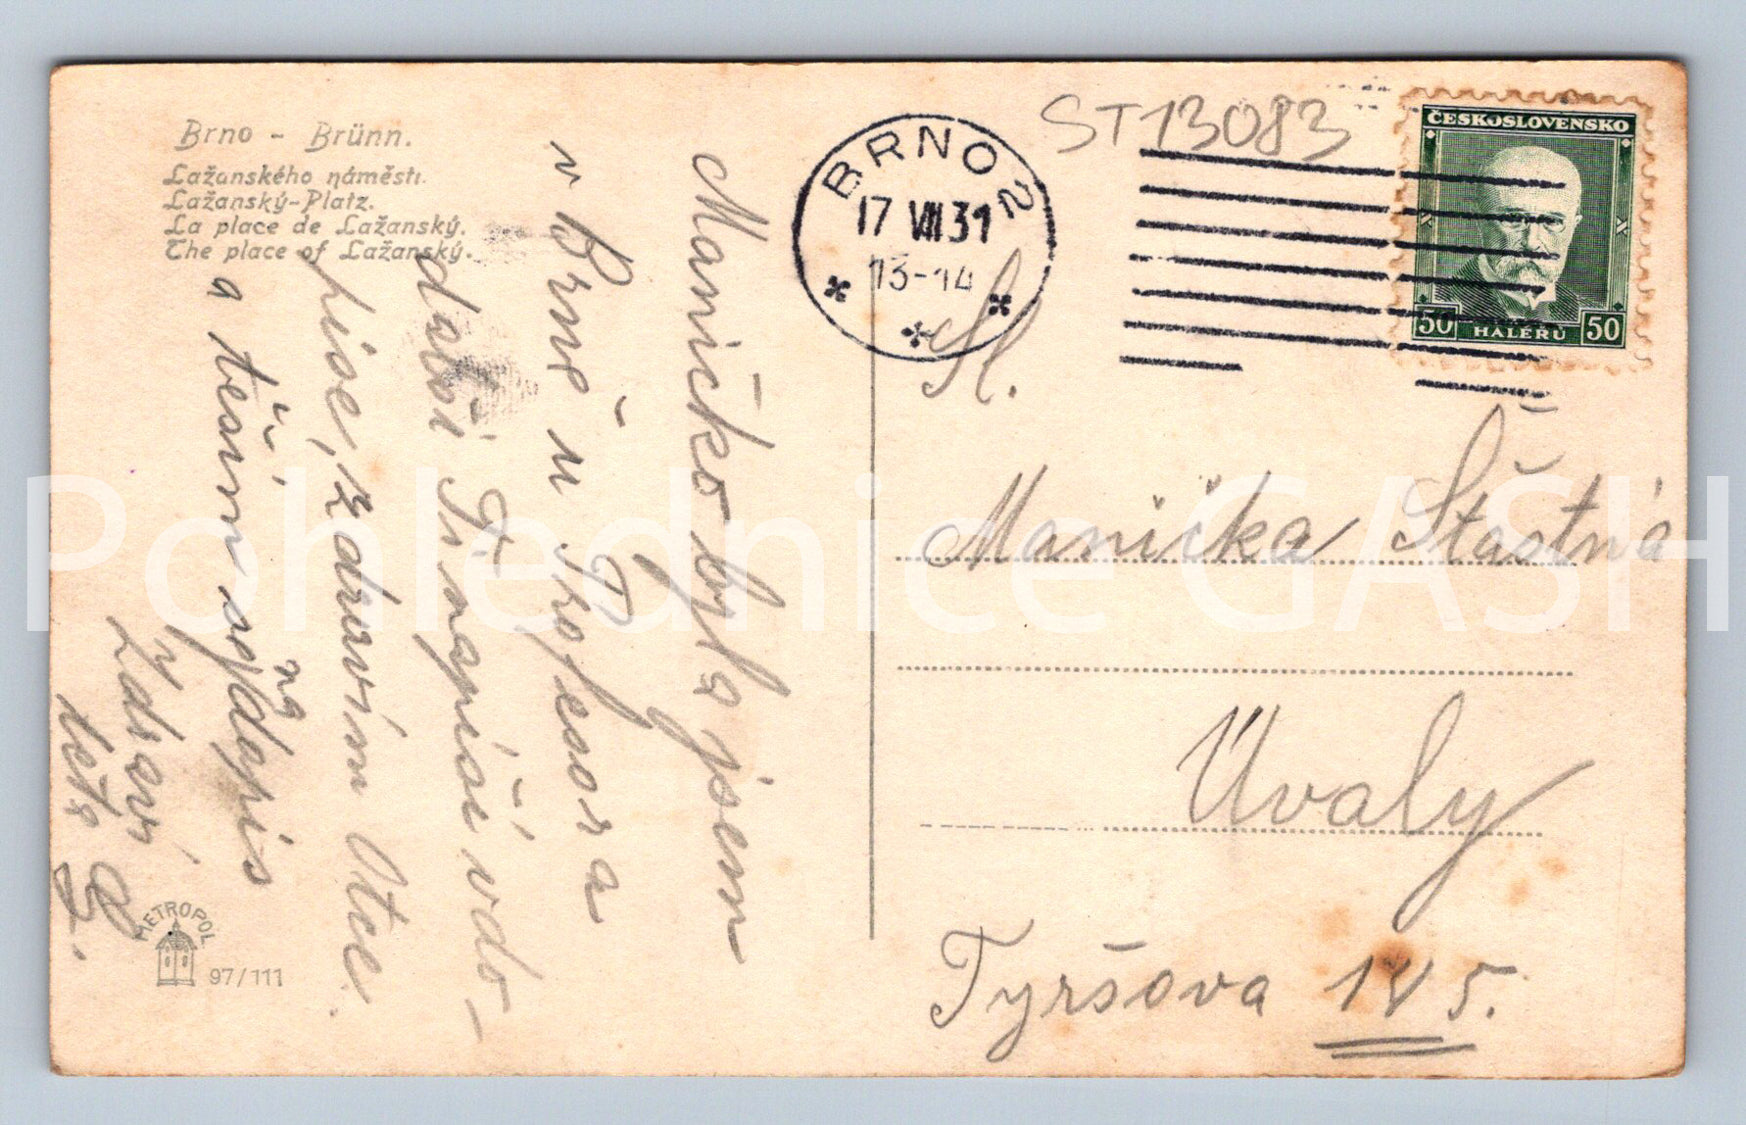 Brno - Brünn.
Lažanského náměstí.
Lažanský-Platz.
La place de Lažanský.
The place of Lažanský.
Maničko byla jsem
v Brně u Profesora
další Ti napíši vdo-
pise, zdravím Otce
a těším se na
dopis
Zdraví
teta
METROPOL
97/111
BRNO 2
17 VII 31
13-14
ST13083
ČESKOSLOVENSKO
50 HALÉŘŮ 50
Sl.
Manička Šťastná
Úvaly
Tyršova 145.
Pohlednice GASH